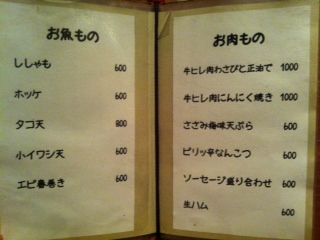 お魚もの
ししゃも 600
ホッケ 600
タコ天 800
小イワシ天 600
エビ春巻き 600
お肉もの
牛ヒレ肉わさびと正油で 1000
牛ヒレ肉にんにく焼き 1000
ささみ梅味天ぷら 600
ピリッ辛なんこつ 600
ソーセージ盛り合わせ 600
生ハム 600